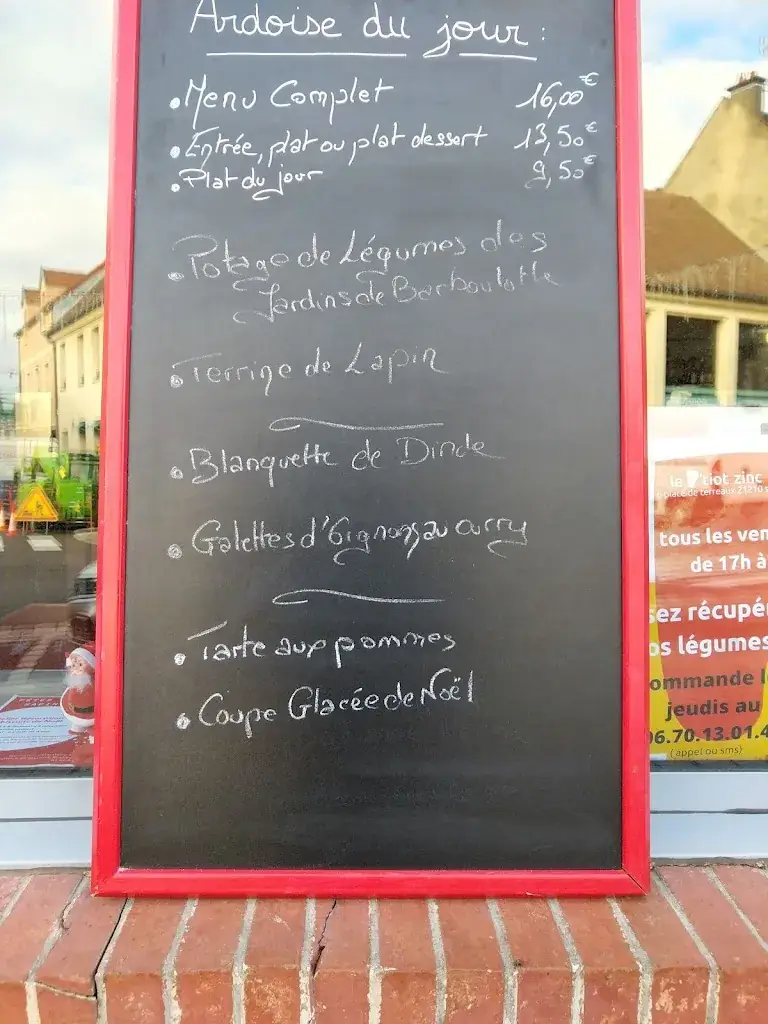 Ardoise du jour :
• Menu Complet 16,00€
• Entrée, plat ou plat dessert 13,50€
• Plat du jour 9,50€
• Potage de Légumes des
Jardins de Barboulotte
• Terrine de Lapin
• Blanquette de Dinde
• Galettes d'Oignons au curry
• Tarte aux pommes
• Coupe Glacée de Noël
le P'tiot zinc
place de terreaux 21210
tous les ven
de 17h à
ez récupé
os légumes
ommande l
jeudis au
06.70.13.01.4
(appel ou sms)